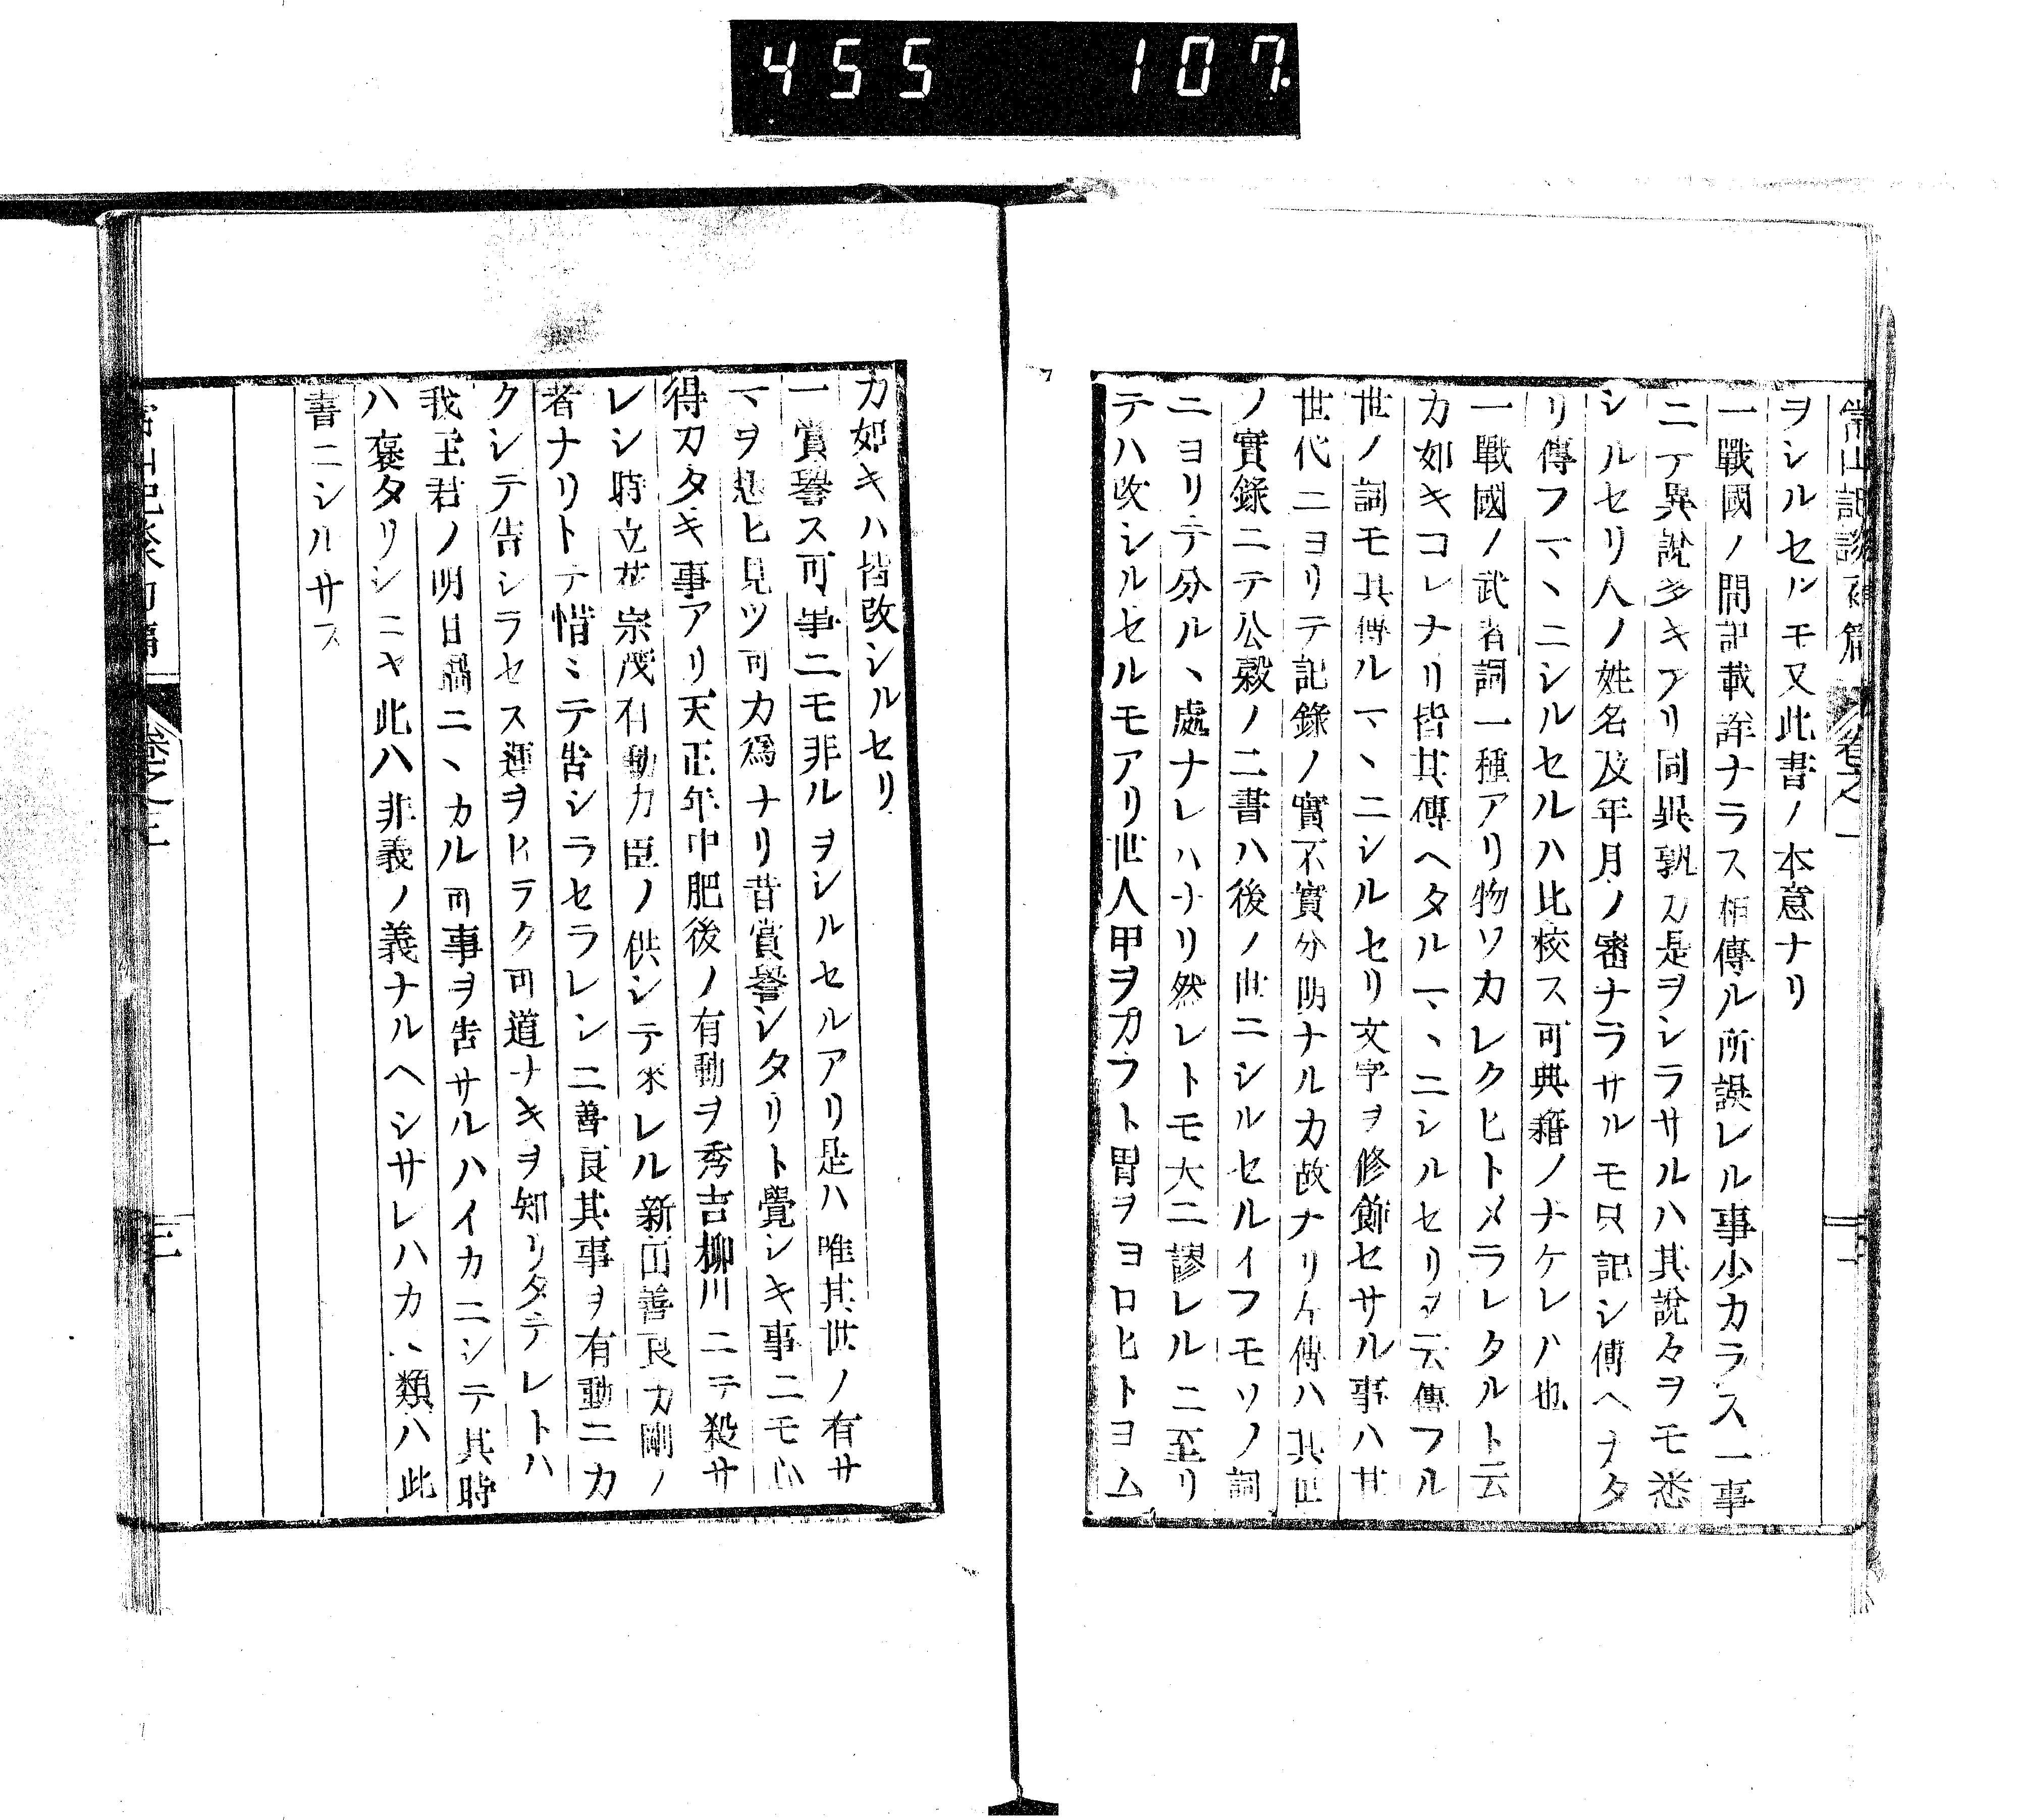 455 107
常山記談 卷之一
ヲシルセルモ又此書ノ本意ナリ
一戰國ノ間記載詳ナラス相傳ル所誤レル事少カラス一事
ニテ異說多キアリ同異孰カ是ヲシラサルハ其說々ヲモ悉
シルセリ人ノ姓名及年月ノ審ナラサルモ只記シ傳ヘキタ
リ傳フマヽニシルセルハ比校ス可典籍ノナケレハ也
一戰國ノ武者詞一種アリ物ソカレクヒトメラレタルト云
カ如キコレナリ皆其傳ヘタルマヽニシルセリ云傳フル
世ノ詞モ其傳ルマヽニシルセリ文字ヲ修飾セサル事ハ其
世代ニヨリテ記錄ノ實不實分明ナルカ故ナリ左傳ハ其世
ノ實錄ニテ公穀ノ二書ハ後ノ世ニシルセルイフモソノ詞
ニヨリテ分ルヽ處ナレハナリ然レトモ大ニ謬レルニ至リ
テハ改シルセルモアリ世人甲ヲカフト胄ヲヨロヒトヨム
カ如キハ皆改シルセリ
一賞譽ス可事ニモ非ルヲシルセルアリ是ハ唯其世ノ有サ
マヲ想ヒ見ツ可カ爲ナリ昔賞譽シタリト覺シキ事ニモ心
得カタキ事アリ天正年中肥後ノ有動ヲ秀吉柳川ニテ殺サ
レシ時立花宗茂有動カ臣ノ供シテ來レル新田善良カ剛ノ
者ナリトテ惜ミテ告シラセラレシニ善良其事ヲ有動ニカ
クシテ告シラセス運ヲヒラク可道ナキヲ知リタテレトハ
我主君ノ明日禍ニヽカル可事ヲ告サルハイカニシテ其時
ハ褒タリシニヤ此ハ非義ノ義ナルヘシサレハカヽル類ハ此
書ニシルサス
三